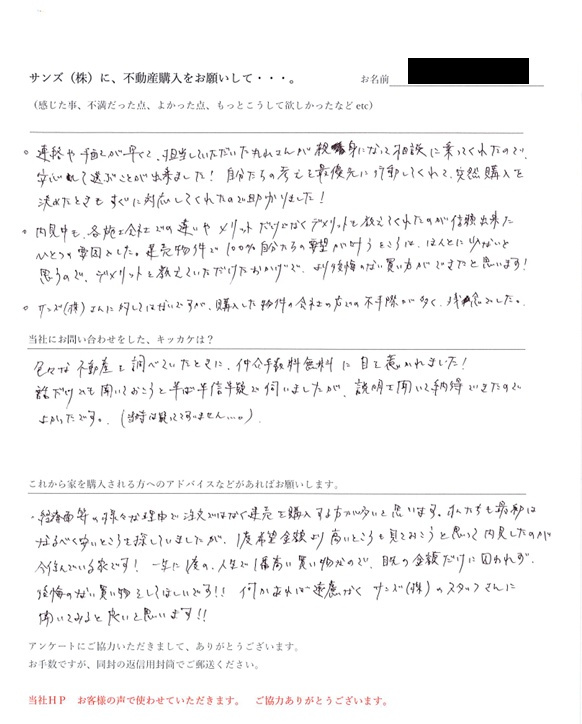 サンズ（株）に、不動産購入をお願いして・・・。
お名前
（感じた事、不満だった点、よかった点、もっとこうして欲しかったなど etc）
。連絡や手配が早くて、担当していただいた丸山さんが親身になって相談に乗ってくれたので、
安心して選ぶことが出来ました！自分たちの考えを最優先に行動してくれて、突然購入を
決めたときもすぐに対応してくれたので助かりました！
。内見中も、各施工会社での違いやメリットだけでなくデメリットも教えてくれたのが信頼出来た
ひとつの要因でした。建売物件で100%自分たちの要望が叶うところは、ほんとに少ないと
思うので、デメリットを教えていただけたおかげで、より後悔のない買い方ができたと思います！
。サンズ(株)さんに対してはないですが、購入した物件の会社の方での不手際が多く、残念でした。
当社にお問い合わせをした、キッカケは？
色々な不動産を調べていたときに、仲介手数料無料に目を惹かれました！
話だけでも聞いておこうと半ば半信半疑で伺いましたが、説明を聞いて納得できたので
よかったです。（当時は疑ってすいません...。）
これから家を購入される方へのアドバイスなどがあればお願いします。
・経済面等の様々な理由で注文ではなく建売を購入する方が多いと思います。私たちも最初は
なるべく安いところを探していましたが、1度希望金額より高いところも見ておこうと思って内見したのが
今住んでいる家です！一生に1度の、人生で1番高い買い物なので、目先の金額だけに囚われず、
後悔のない買い物をしてほしいです!!何かあれば遠慮なくサンズ(株)のスタッフさんに
聞いてみると良いと思います!!
アンケートにご協力いただきまして、ありがとうございます。
お手数ですが、同封の返信用封筒でご郵送ください。
当社ＨＰ　お客様の声で使わせていただきます。　ご協力ありがとうございます。